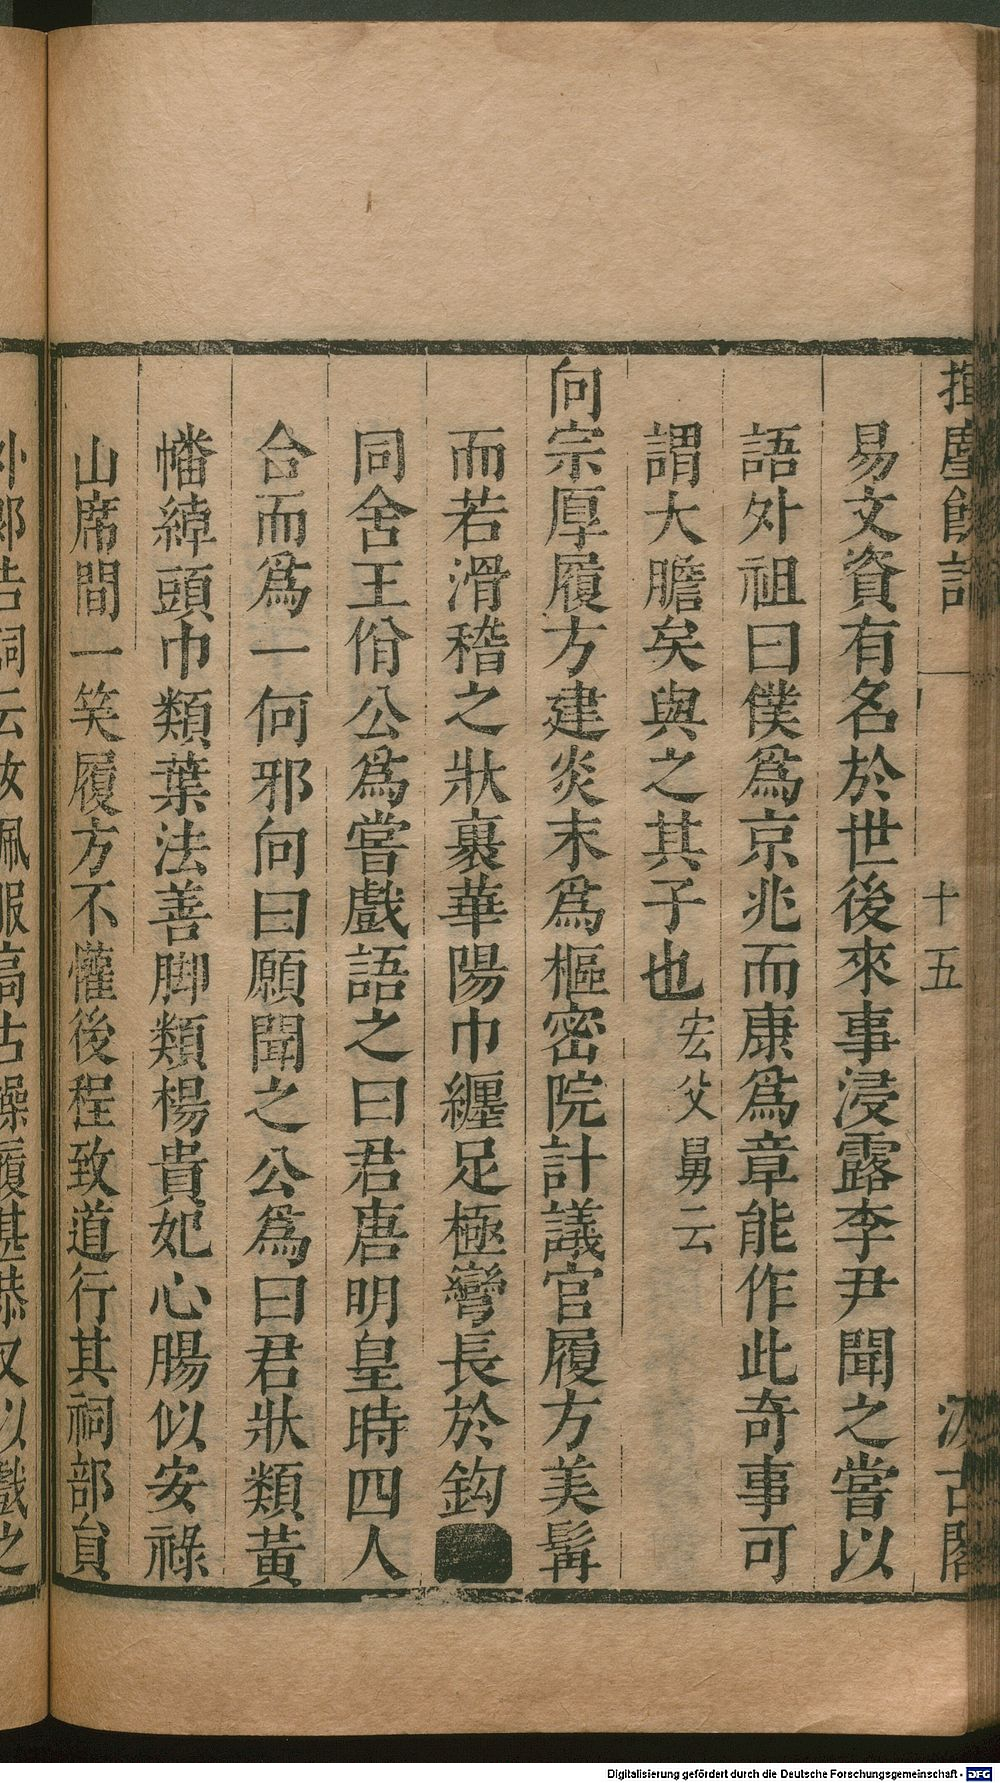 揮麈餘話
十五
汲古閣
易文資有名於世後來事浸露李尹聞之嘗以
語外祖曰僕爲京兆而康爲章能作此奇事可
謂大膽矣與之其子也宏父舅云
向宗厚履方建炎末爲樞密院計議官履方美髯
而若滑稽之狀裹華陽巾纏足極彎長於鈎
同舍王佾公爲嘗戲語之曰君唐明皇時四人
合而爲一何邪向曰願聞之公爲曰君狀類黃
幡綽頭巾類葉法善脚類楊貴妃心腸似安祿
山席間一笑履方不懽後程致道行其祠部貟
外郎告詞云汝佩服高古操履甚恭又以戲之
Digitalisierung gefördert durch die Deutsche Forschungsgemeinschaft - DFG